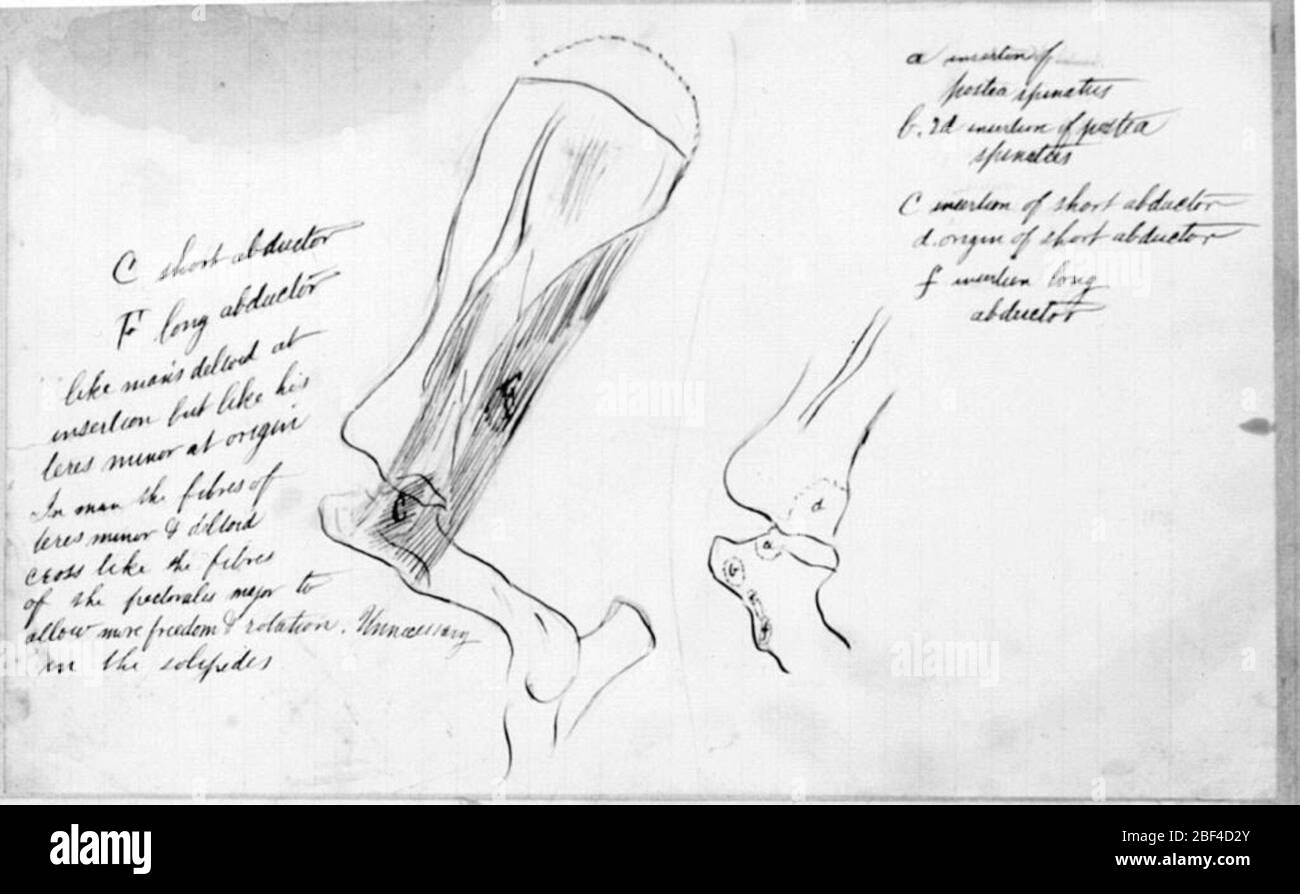 a insertion of
postea spinatus
b. 2d insertion of postea
spinatus
C insertion of short abductor
d. origin of short abductor
f insertion long
abductor
C short abductor
F long abductor
like man's deltoid at
insertion but like his
teres minor at origin
In man the fibres of
teres minor & deltoid
cross like the fibres
of the pectoralis major to
allow more freedom & rotation. Unnecessary
in the solipedes
F
C
d
a
b
c
f
alamy
alamy
alamy
alamy
alamy
alamy
Image ID: 2BF4D2Y
www.alamy.com